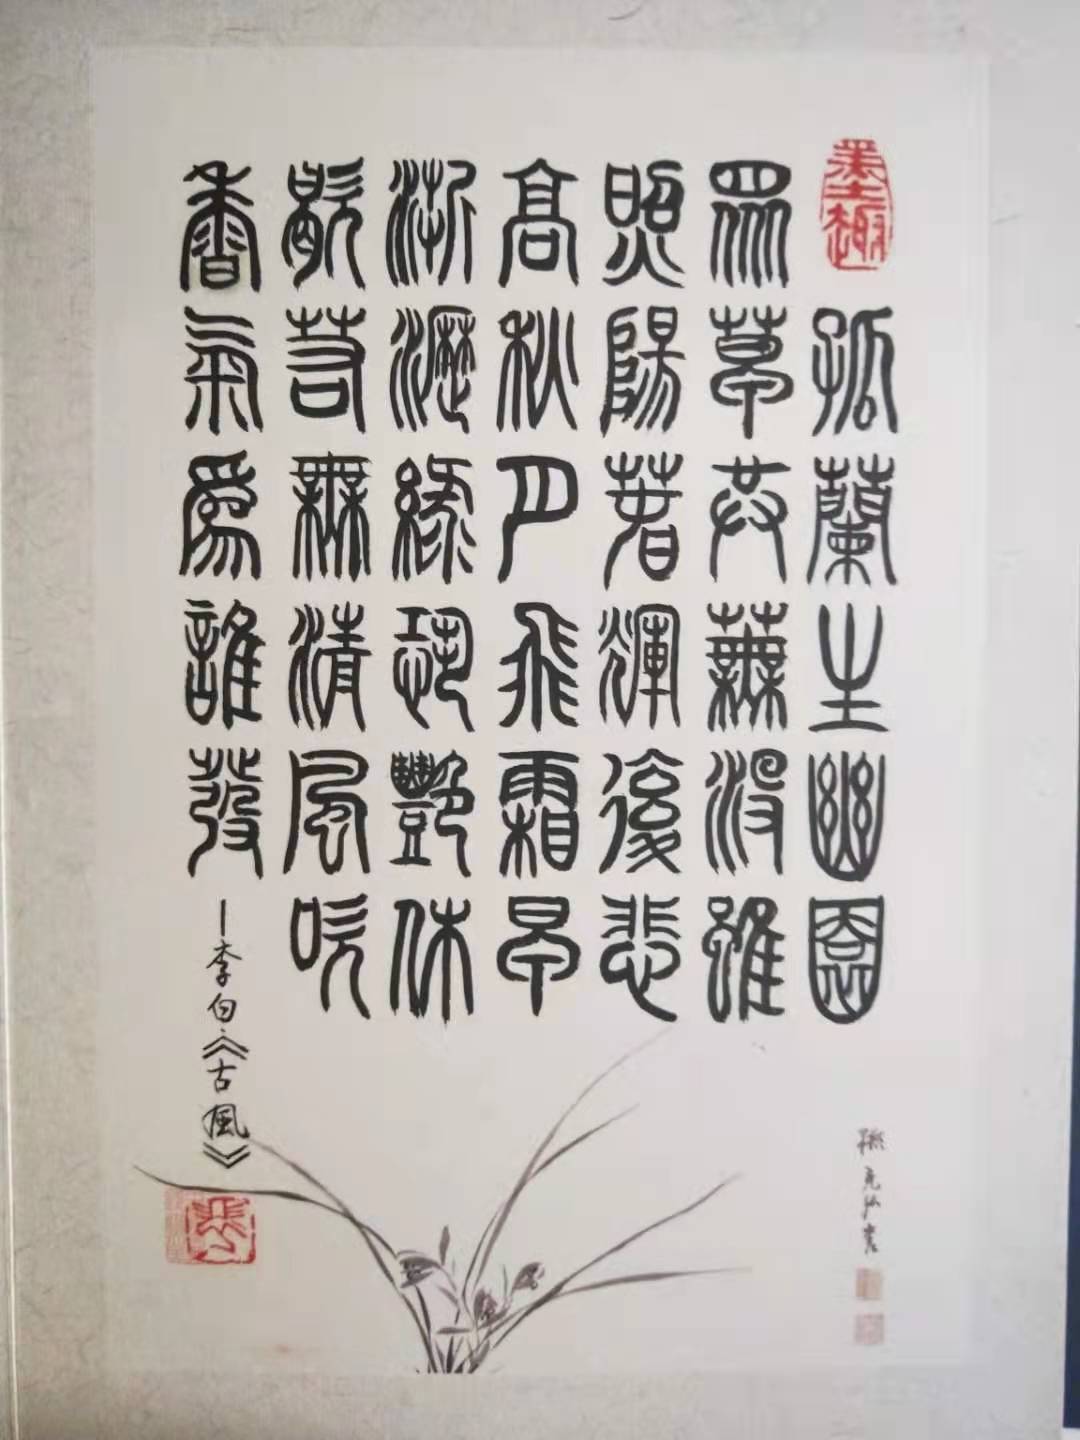 墨趣
孤蘭生幽園
眾草共蕪沒雖
照陽春輝後悲
高秋月飛霜早
淅瀝綠恐豔休
歇若無清風吹
香氣為誰發
—李白《古風》
孫克弘